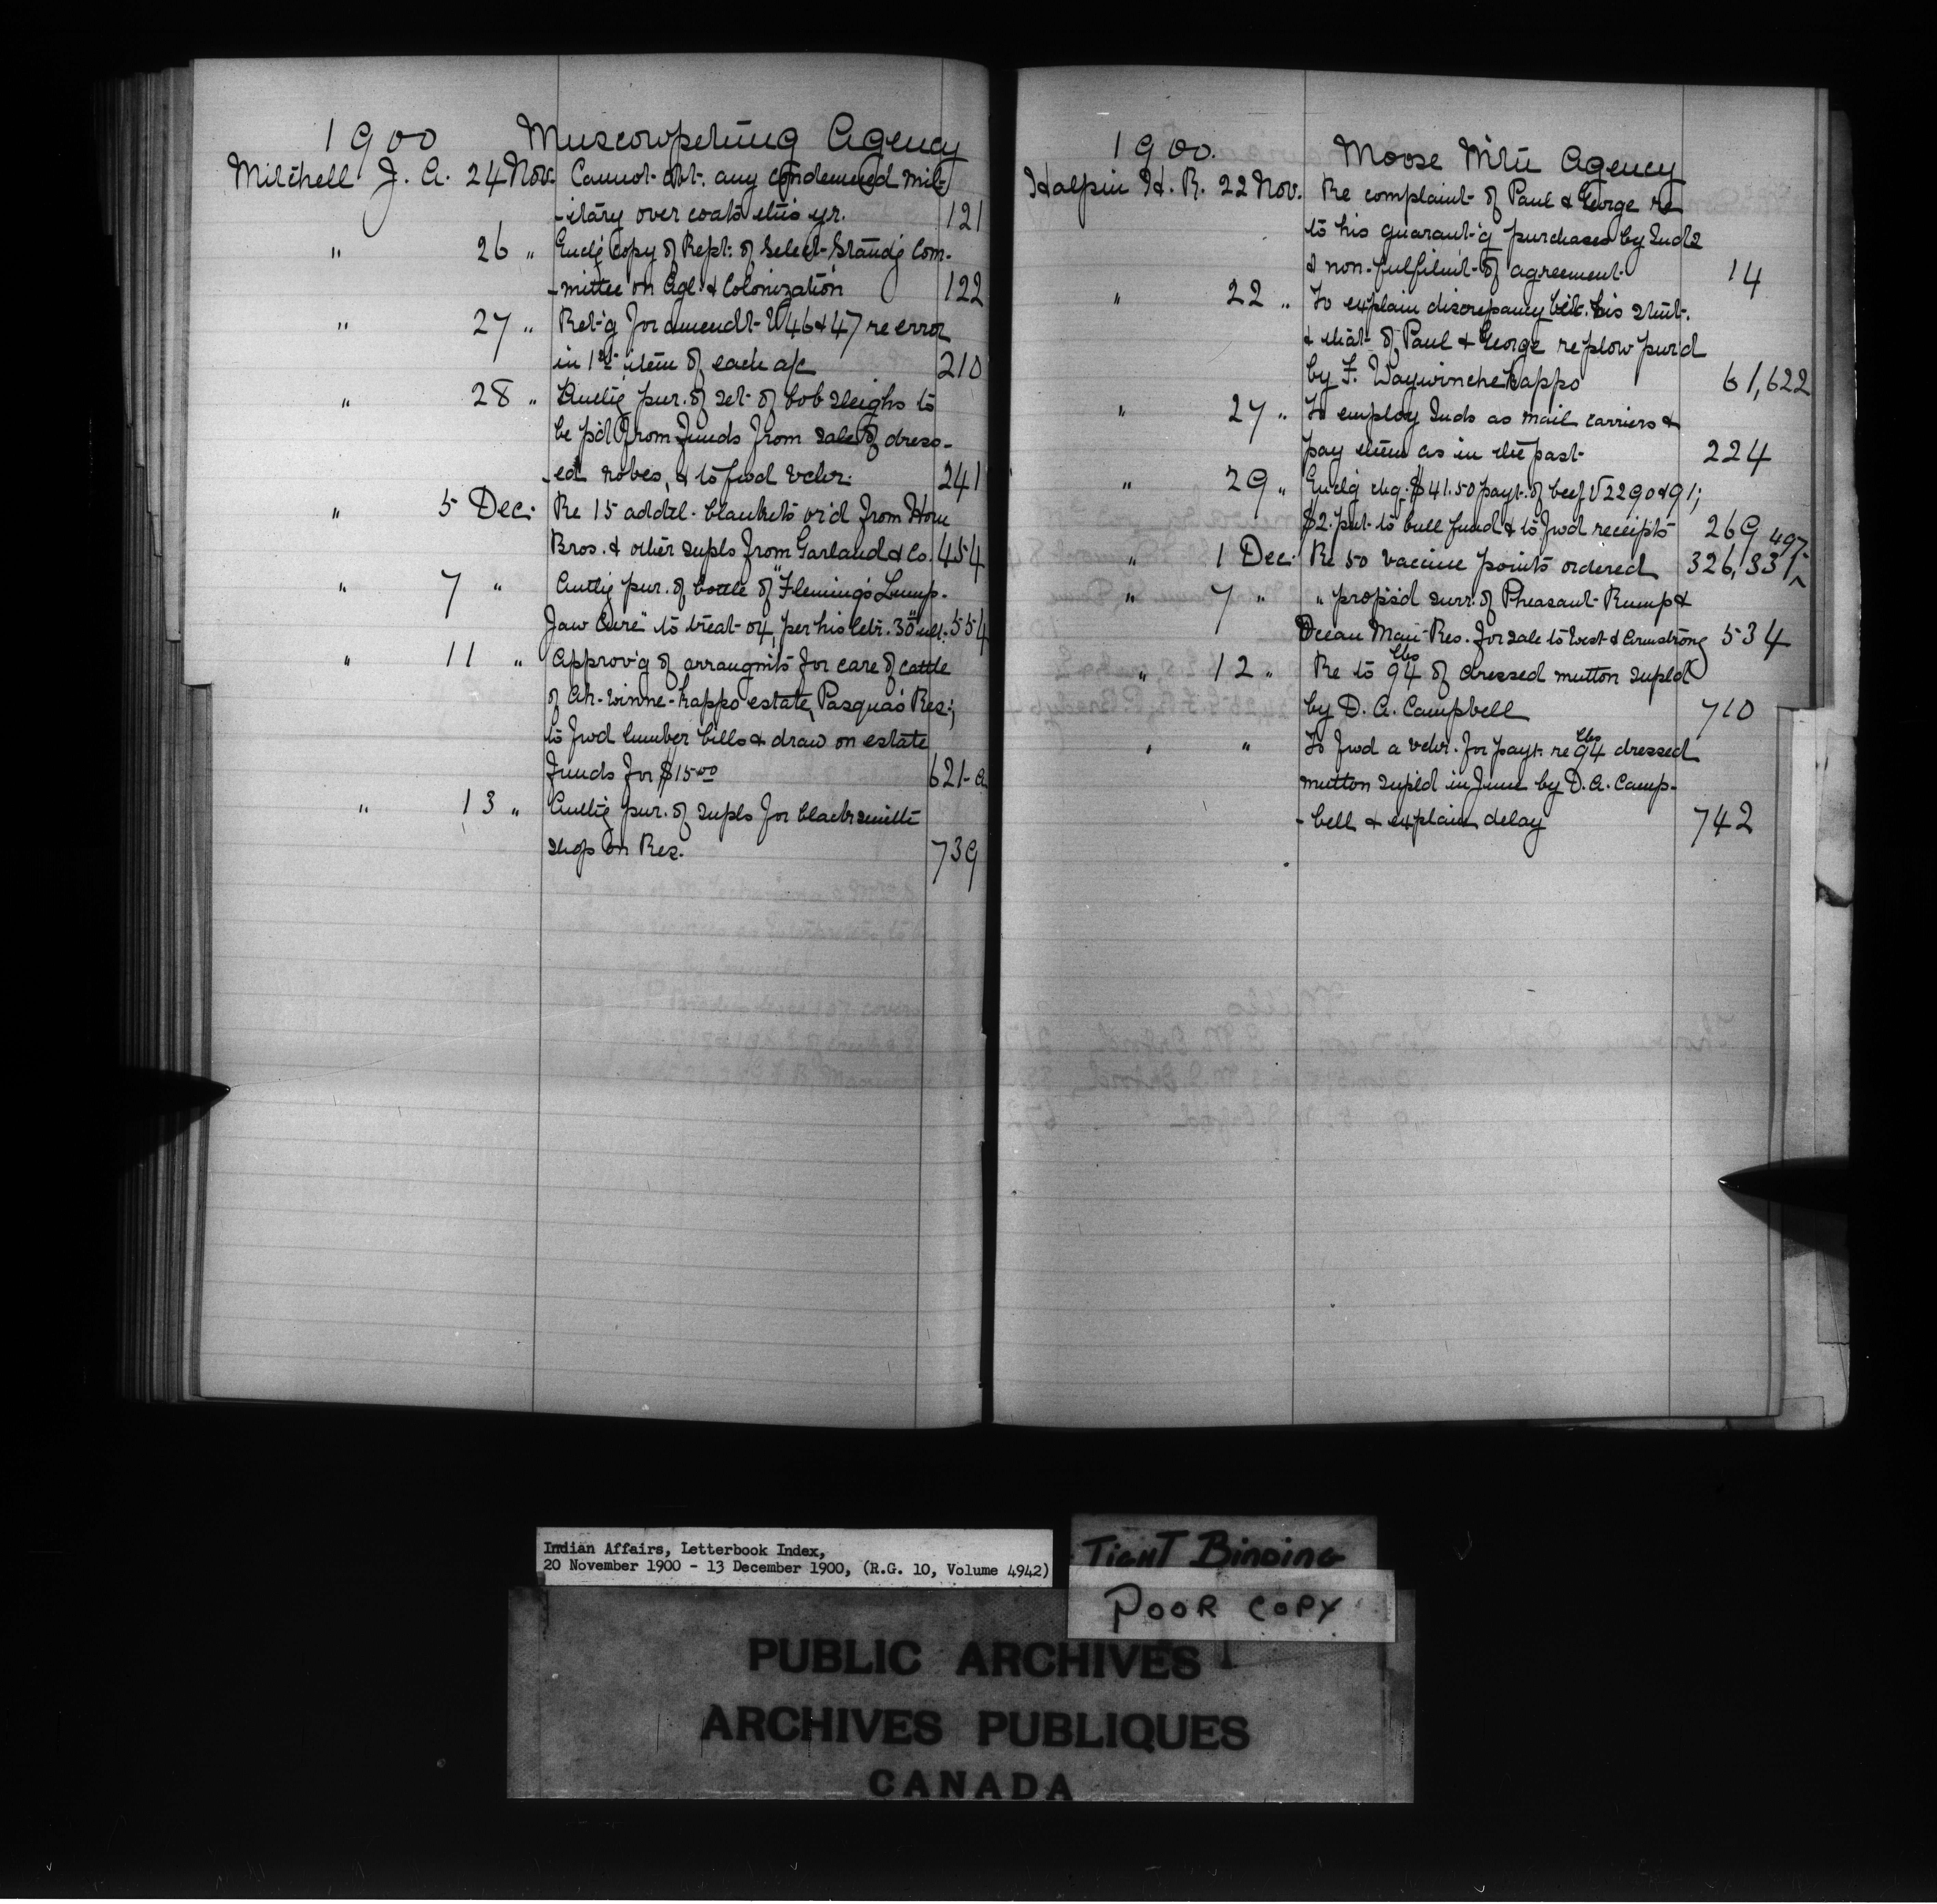 1900 Muscowpetung Agency
Mitchell J. A. 24 Nov. Cannot obt. any condemned mil-
-itary over coats this yr. 121
" 26 " Encl'g copy of Rept. of Select Stand'g Com-
-mittee on Agl. & Colonization 122
" 27 " Ret'g for amendt. V46 & 47 re error
in 1st item of each a/c 210
" 28 " Auth'g pur. of set of bob sleighs to
be p'd from funds from sale of dress-
-ed robes, & to fwd vchr. 241
" 5 Dec. Re 15 addtl. blankets or'd from Horne
Bros. & other supls from Garland & Co. 454
" 7 " Auth'g pur. of bottle of "Fleming's Lump-
Jaw Cure" to treat ox per his letr. 30 ult. 554
" 11 " Approv'g of arrangmts for care of cattle
of Ah-winne-kappo estate, Pasqua's Res.;
to fwd lumber bills & draw on estate
funds for $15.00 621-a
" 13 " Auth'g pur. of supls for blacksmith
shop on Res. 739
1900. Moose Mtn Agency
Halpin H. R. 22 Nov. Re complaint of Paul & George re
to his guarant'g purchases by Inds
& non-fulfilm't of agreement 14
" 22 " To explain discrepancy bet. his stmt.
& that of Paul & George re plow pur'd
by F. Waywinchekappo 61,622
" 27 " To employ Inds as mail carriers &
pay them as in the past 224
" 29 " Encl'g chq. $41.50 payt. of beef V2290 & 91;
$2. put to bull fund & to fwd receipts 269
" 1 Dec. Re 50 vaccine points ordered 326, 331, 497
" 7 " " prop's'd surr. of Pheasant Rump &
Ocean Man Res. for sale to West & Armstrong 534
" 12 " Re to 94 lbs of dressed mutton supl'd
by D. A. Campbell 710
" " To fwd a vchr. for payt. re 94 lbs dressed
mutton supl'd in June by D. A. Camp-
-bell & explain delay 742
Indian Affairs, Letterbook Index,
20 November 1900 - 13 December 1900, (R.G. 10, Volume 4942)
TIGHT BINDING
POOR COPY
PUBLIC ARCHIVES
ARCHIVES PUBLIQUES
CANADA